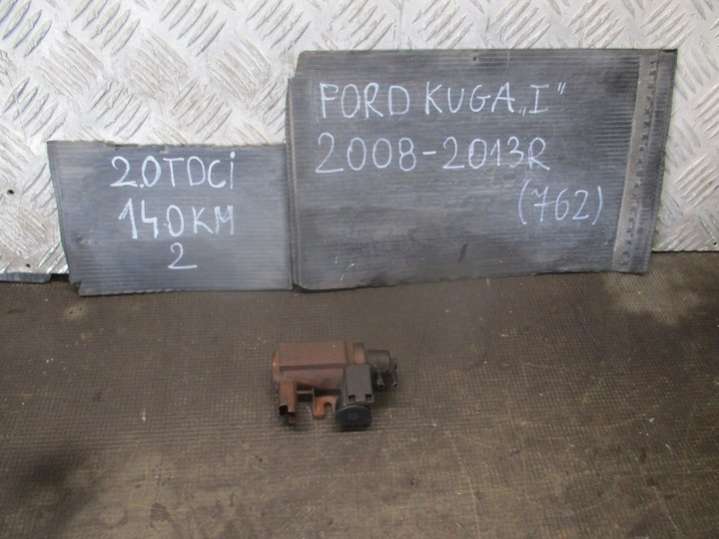 2.0TDCi
140KM
2
FORD KUGA „I”
2008-2013R
(762)